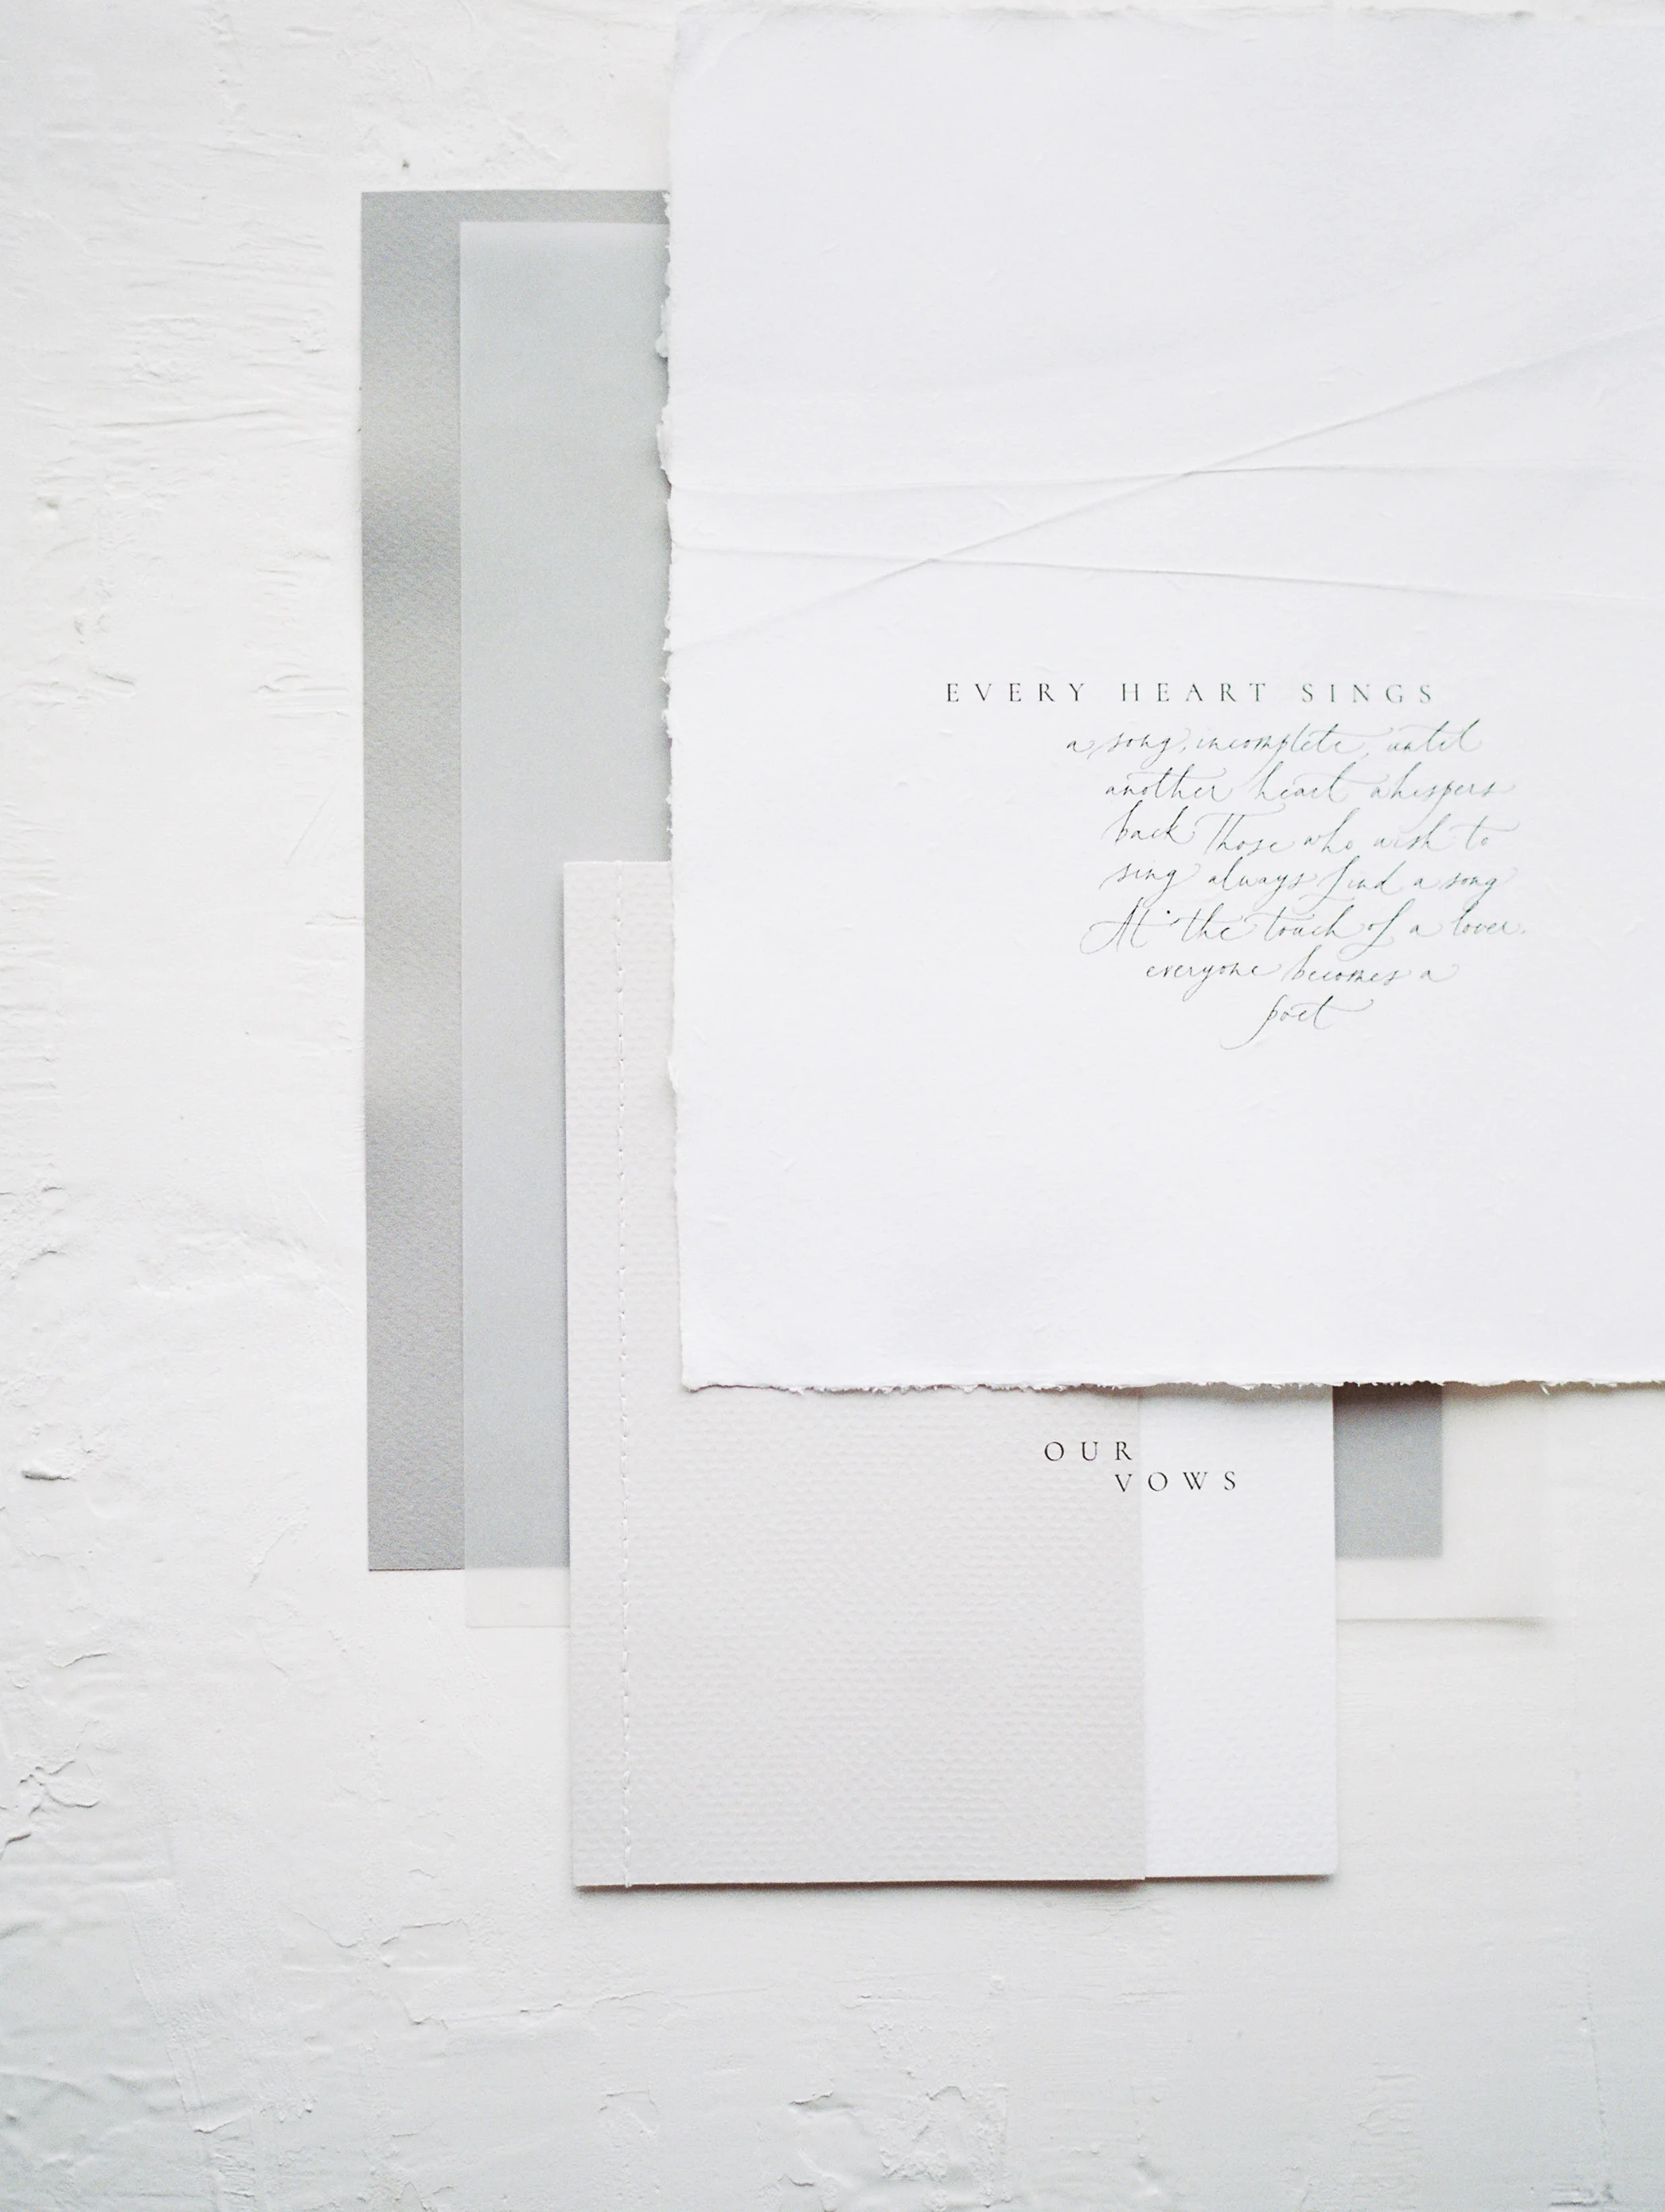 EVERY HEART SINGS
a song, incomplete, until
another heart whispers
back Those who wish to
sing always find a song
At the touch of a lover,
everyone becomes a
poet
OUR
VOWS